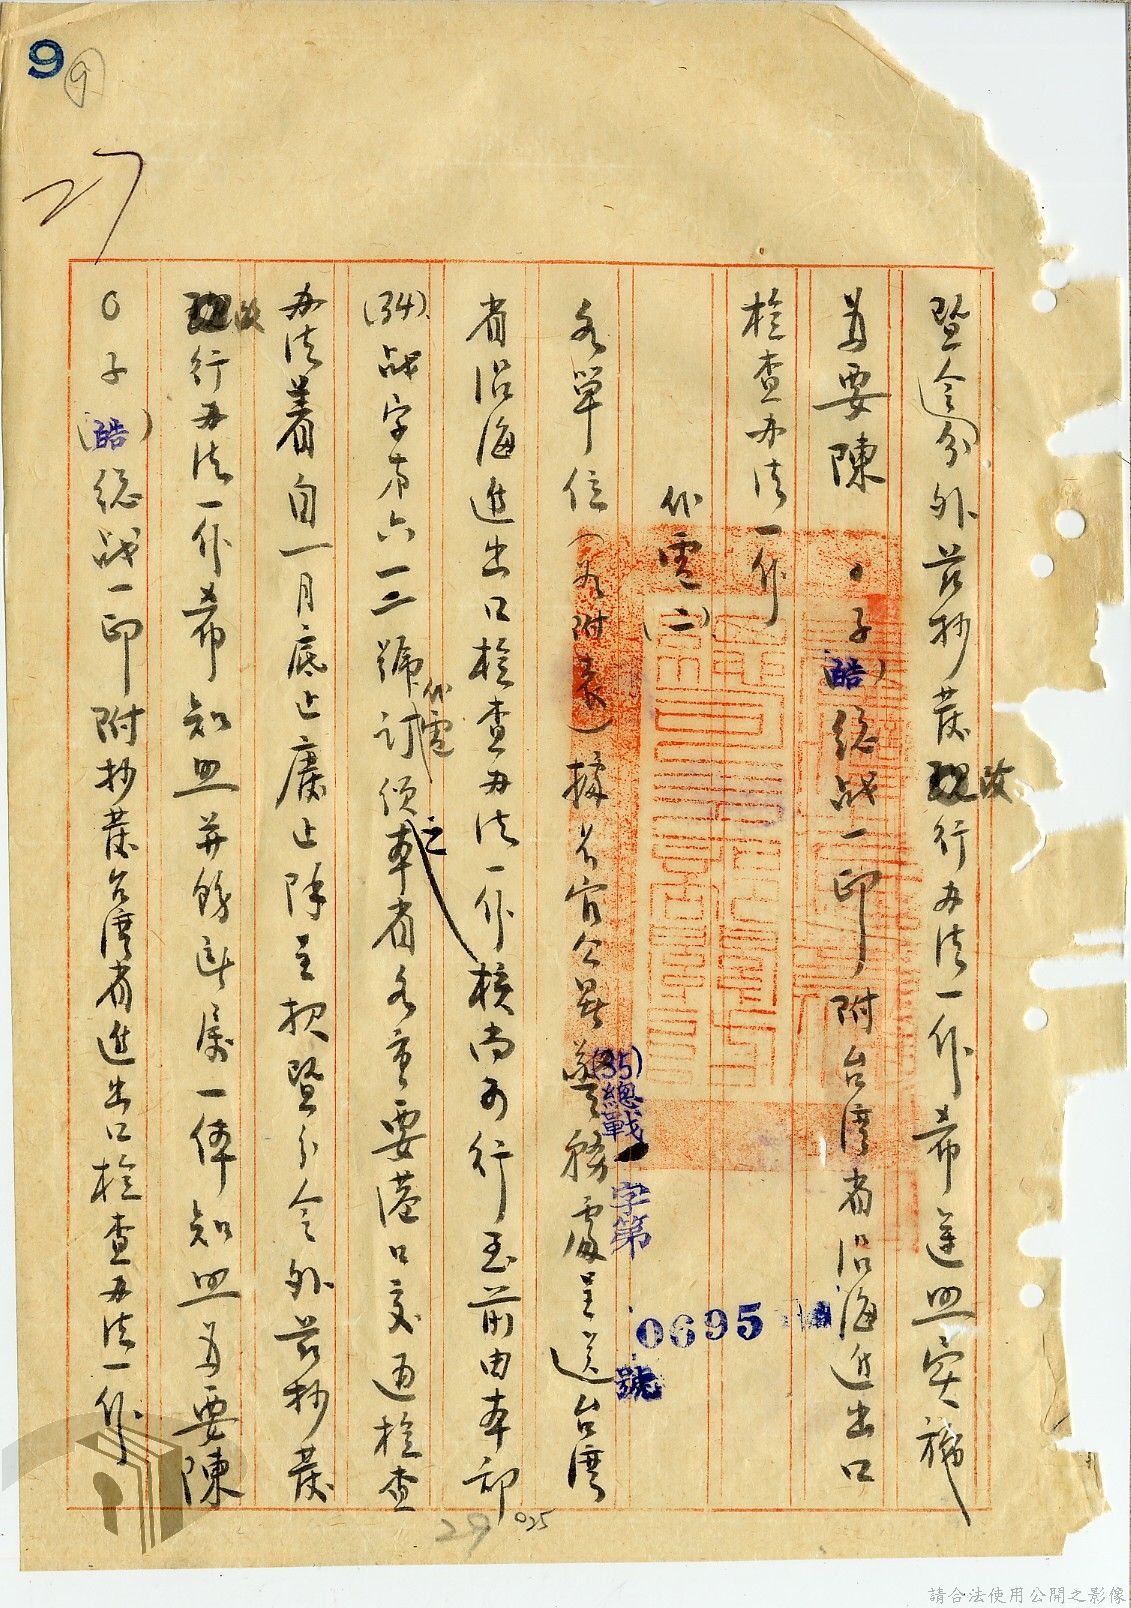 9
9
27
暨分令外茲抄發改行办法一份希遵照实施
為要陳〇〇子(酷)總战一印附台湾省沿海进出口
檢查办法一份
代電(二)
(35)總戰一字第0695號
各單位(如附表)據長官公署警務處呈送台湾
省沿海進出口檢查办法一份核尚可行至前由本部
(34)战字第六一二號代電訂頒之本省各重要港口交通檢查
办法着自一月底止廢止除呈报暨分令外茲抄發
改行办法一份希知照並飭所屬一体知照為要陳
〇子(酷)總战一印附抄發台湾省進出口檢查办法一份
29
025
請合法使用公開之影像